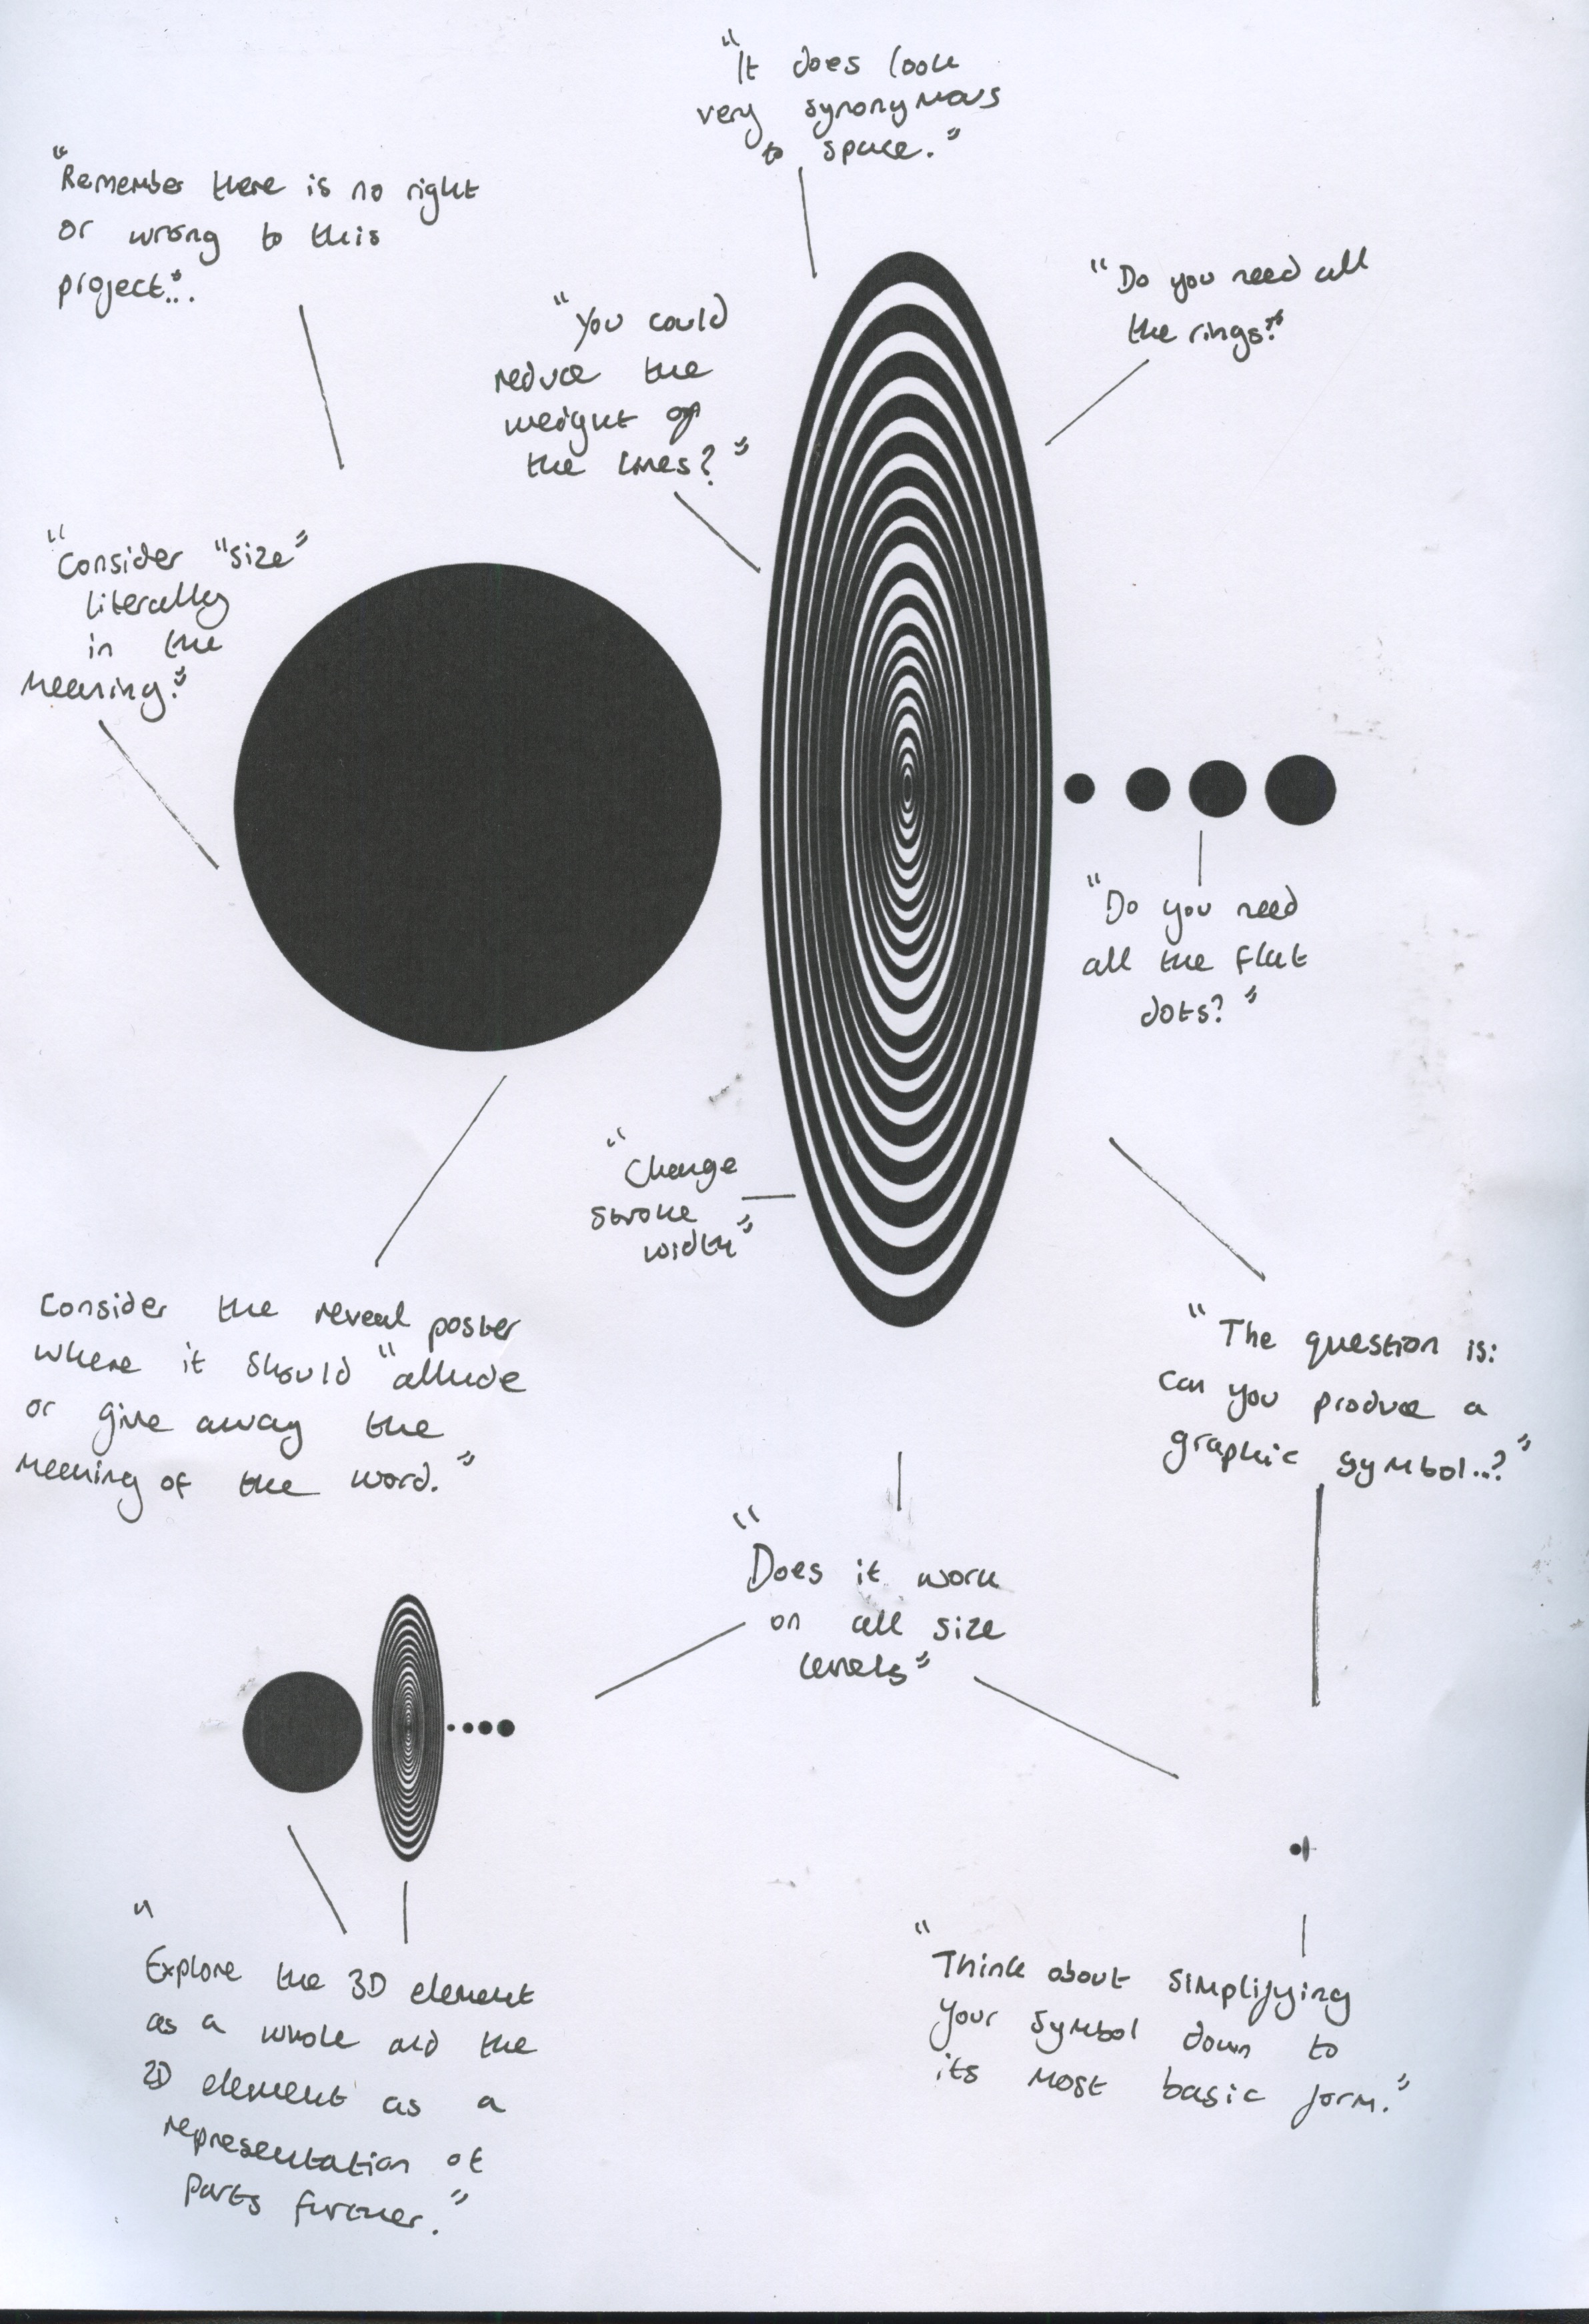 "It does look
very synonymous
to space."
"Remember there is no right
or wrong to this
project."..
"You could
reduce the
weight of
the lines?"
"Do you need all
the rings?"
"Consider "size"
literally
in the
meaning."
"Do you need
all the flat
dots?"
"Change
stroke
width"
Consider the reveal poster
where it should "allude
or give away the
meaning of the word."
"The question is:
can you produce a
graphic symbol..?"
"Does it work
on all size
levels"
"Explore the 3D element
as a whole and the
2D element as a
representation of
parts further."
"Think about simplifying
your symbol down to
its most basic form."